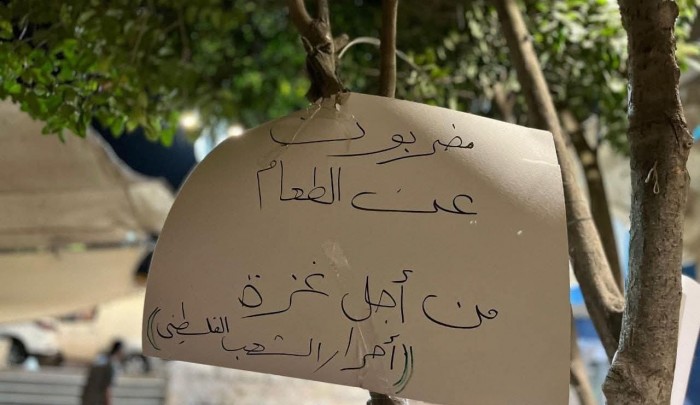 مضربون
عن الطعام
من أجل غزة
((أحرار الشعب الفلسطيني))